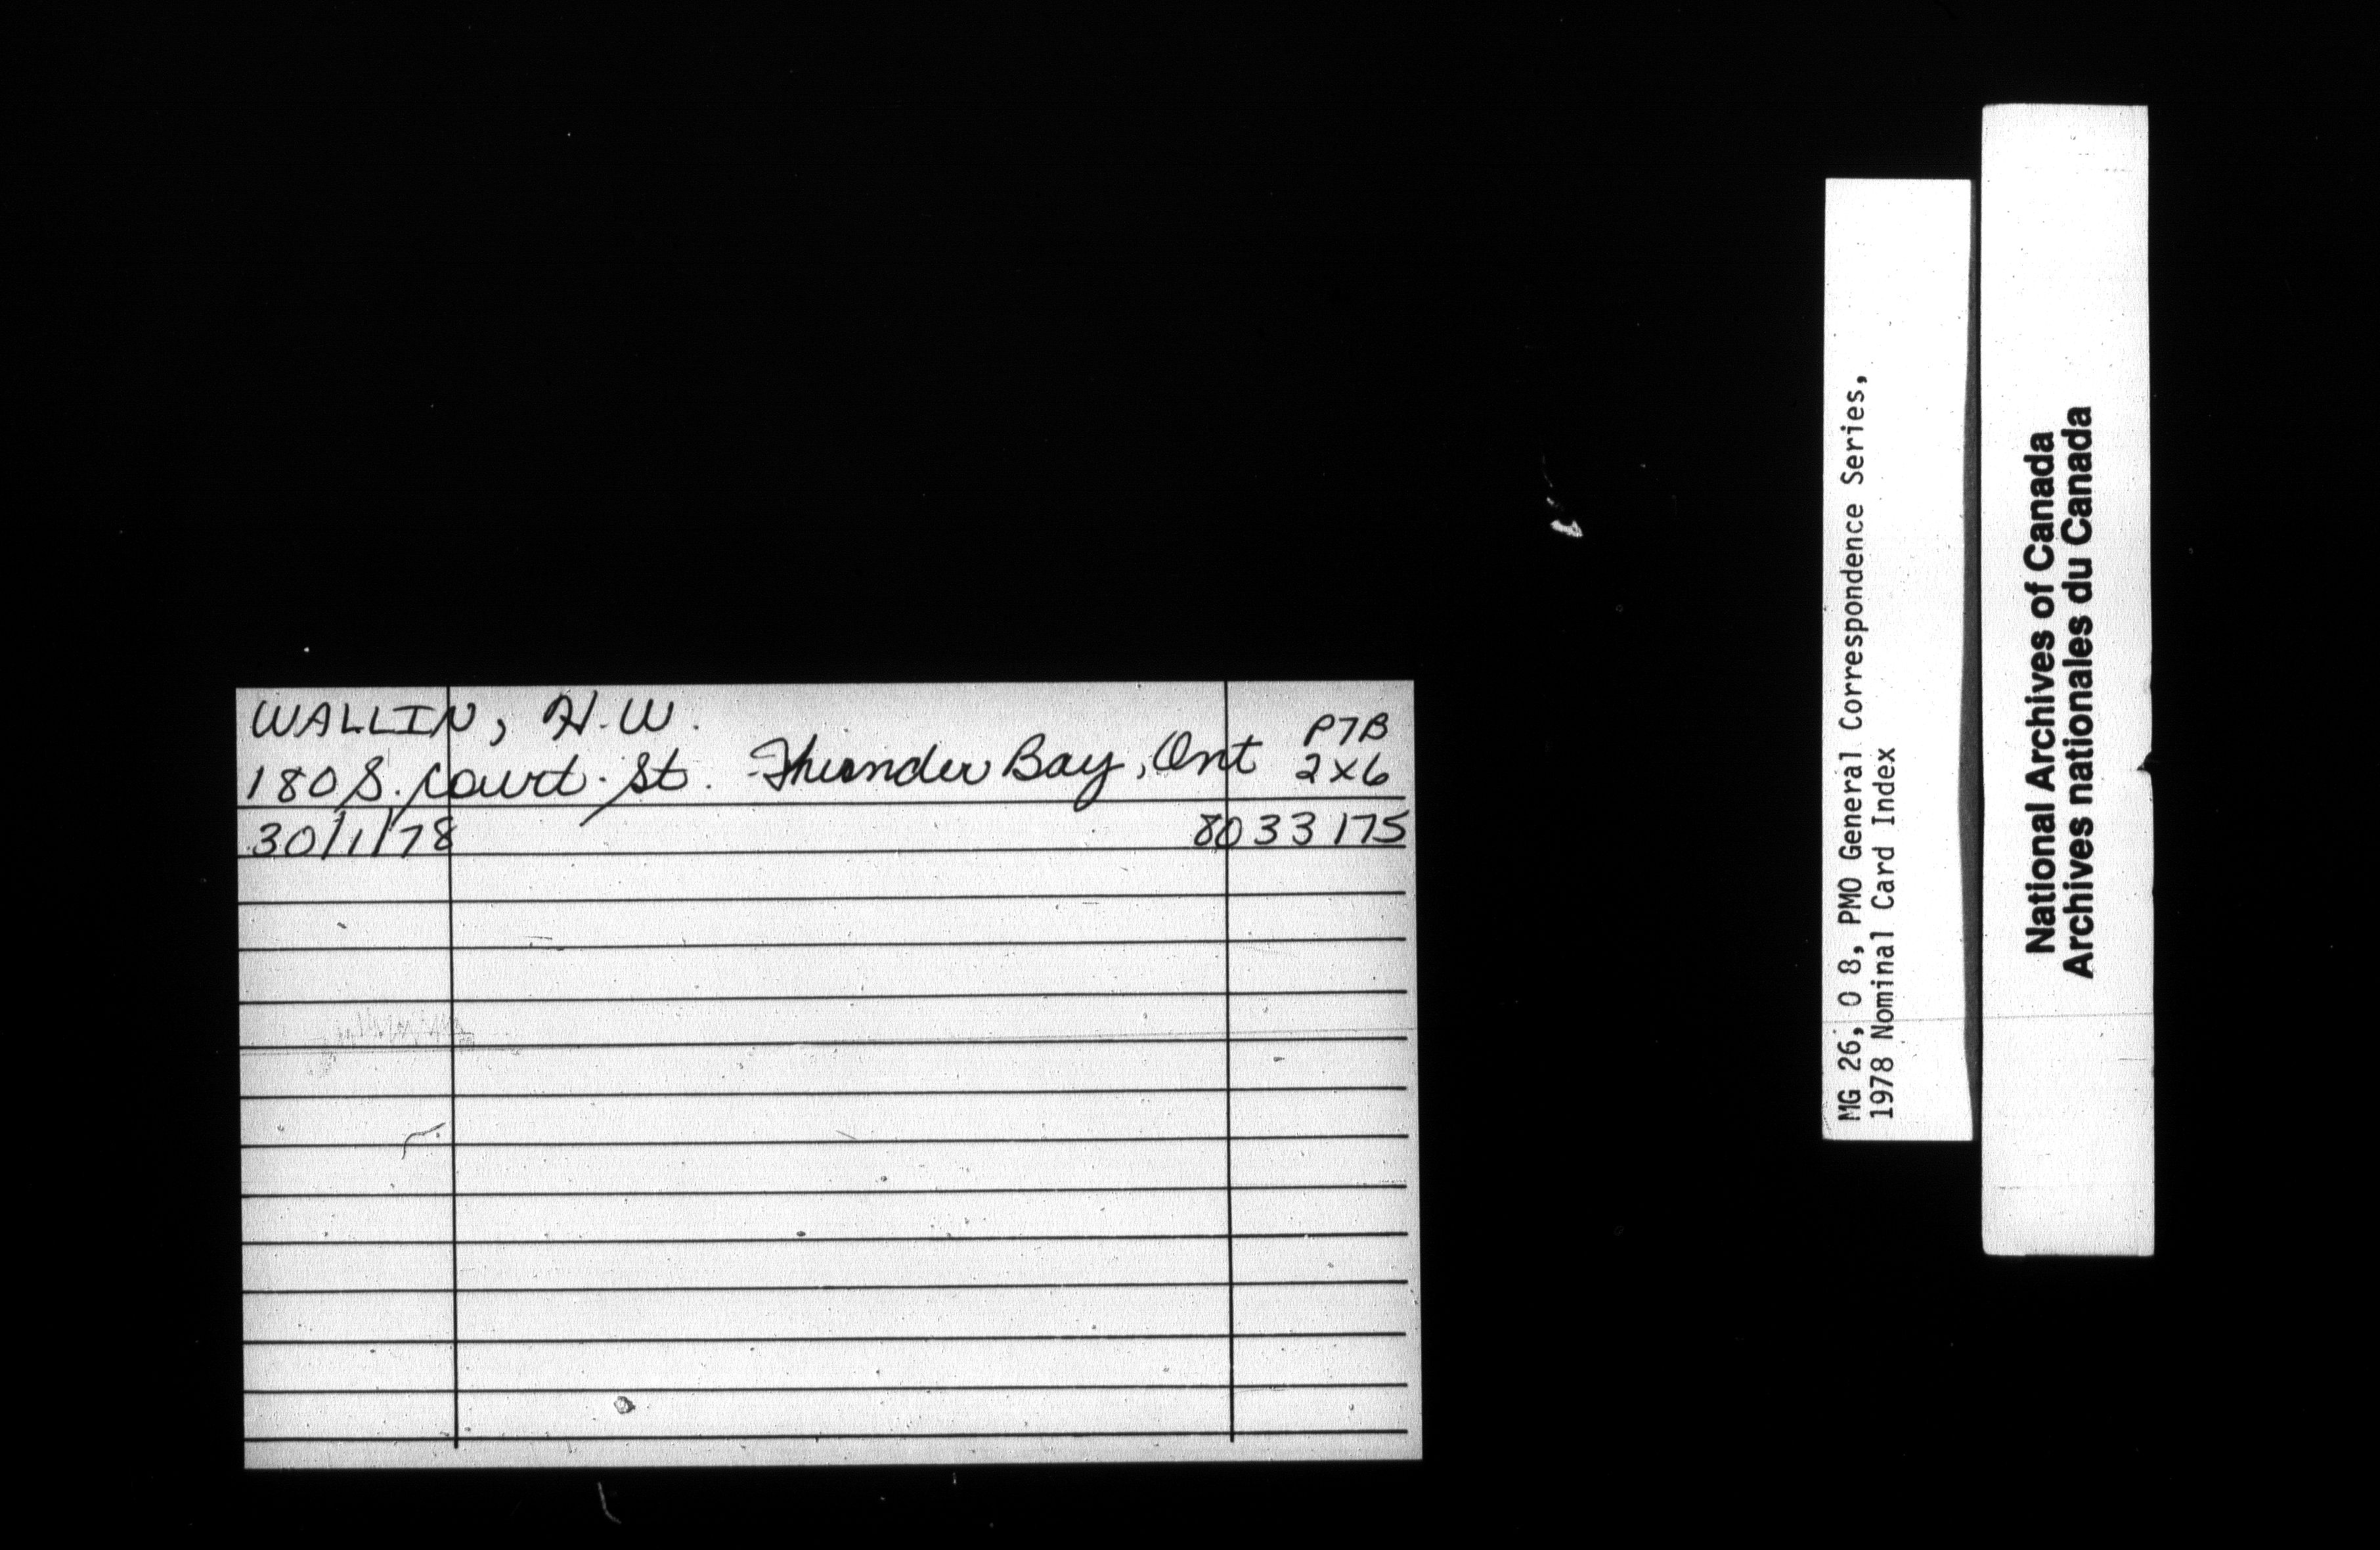 WALLIN, H.W.
180 S. Court St. Thunder Bay, Ont P7B 2X6
30/1/78 8033175
MG 26, O 8, PMO General Correspondence Series,
1978 Nominal Card Index
National Archives of Canada
Archives nationales du Canada